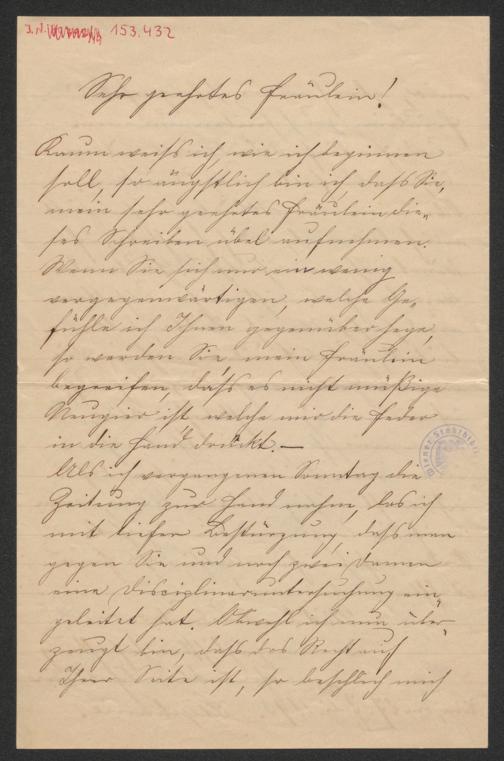 J. N. 153.432
Sehr geehrtes Fräulein!
Kaum weiß ich, wie ich beginnen
soll, so ängstlich bin ich dass Sie,
mein sehr geehrtes Fräulein die„
ses Schreiben übel aufnehmen.
Wenn Sie sich nur ein wenig
vergegenwärtigen, welche Ge„
fühle ich Ihnen gegenüber hege,
so werden Sie, mein Fräulein
begreifen, daß es nicht müßige
Neugier ist, welche mir die Feder
in die Hand drückt. —
Als ich vergangenen Sonntag die
Zeitung zur Hand nahm, las ich
mit tiefer Bestürzung, dass man
gegen Sie und noch zwei Damen
eine Disciplinaruntersuchung ein„
geleitet hat. Obwohl ich nun über„
zeugt bin, dass das Recht auf
Ihrer Seite ist, so beschlich mich